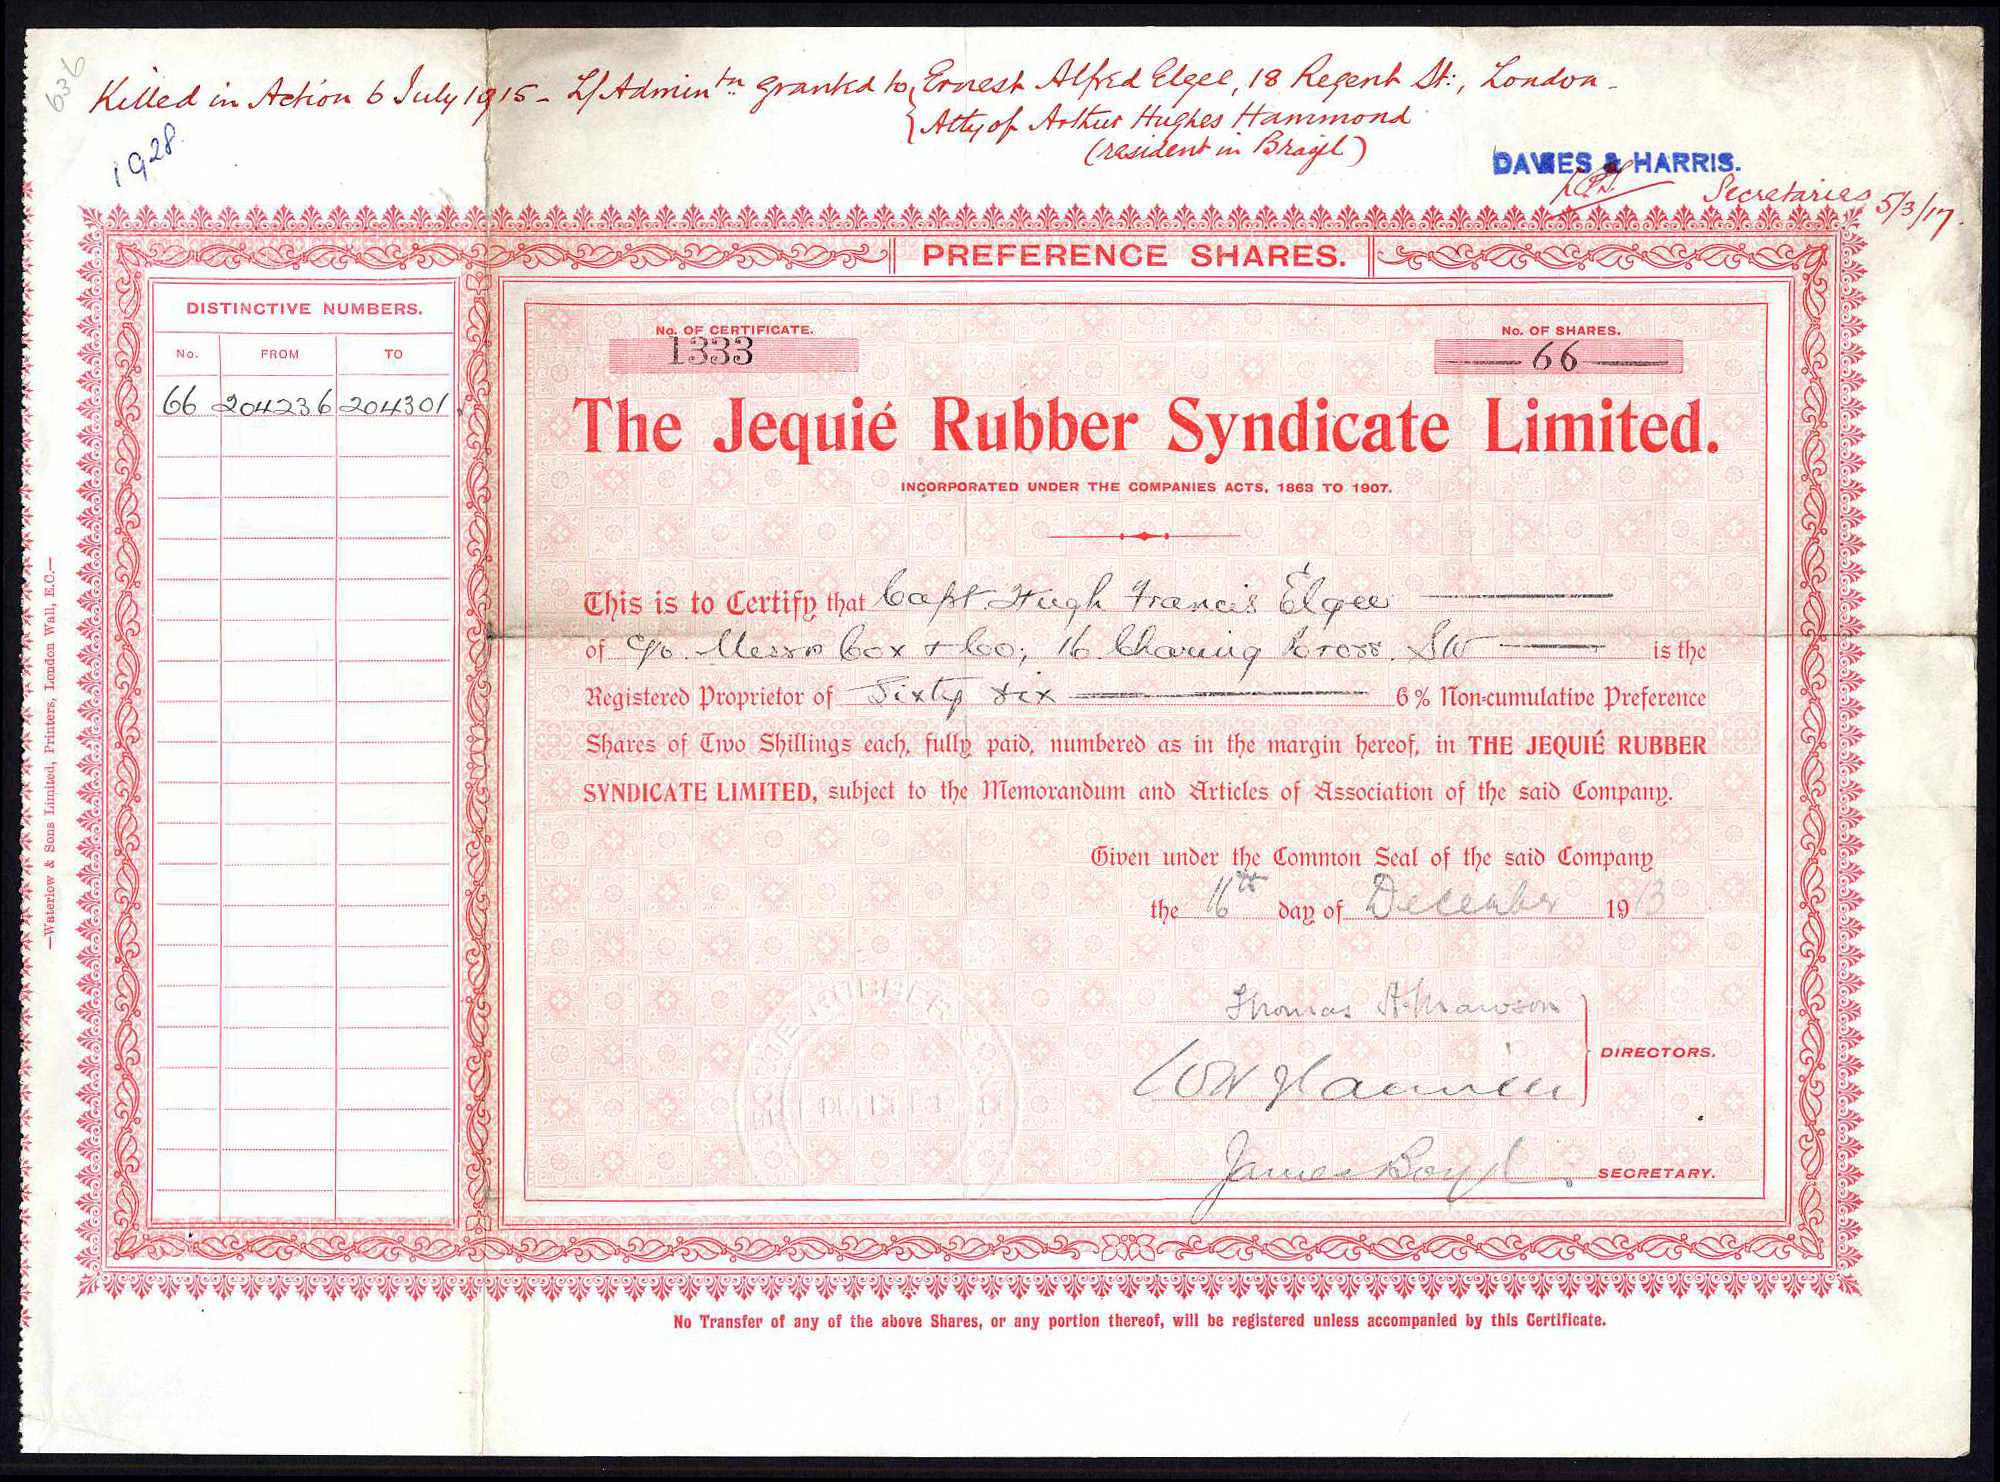 636
Killed in Action 6 July 1915 - L/Admin tn granted to Ernest Alfred Elgee, 18 Regent St:, London -
Atty of Arthur Hughes Hammond
(resident in Brazil)
1928.
DAVIES & HARRIS.
Secretaries 5/3/17.
PREFERENCE SHARES.
DISTINCTIVE NUMBERS.
No. FROM TO
66 204236 204301
No. OF CERTIFICATE.
1333
No. OF SHARES.
66
The Jequié Rubber Syndicate Limited.
INCORPORATED UNDER THE COMPANIES ACTS, 1863 TO 1907.
This is to Certify that Capt Hugh Francis Elgee
of c/o. Messrs Cox & Co; 16 Charing Cross. SW is the
Registered Proprietor of Sixty six 6% Non-cumulative Preference
Shares of Two Shillings each, fully paid, numbered as in the margin hereof, in THE JEQUIÉ RUBBER
SYNDICATE LIMITED, subject to the Memorandum and Articles of Association of the said Company.
Given under the Common Seal of the said Company
the 16th day of December 1913
Thomas H. Mawson
DIRECTORS.
James Boyd
SECRETARY.
No Transfer of any of the above Shares, or any portion thereof, will be registered unless accompanied by this Certificate.
—Waterlow & Sons Limited, Printers, London Wall, E.C.—